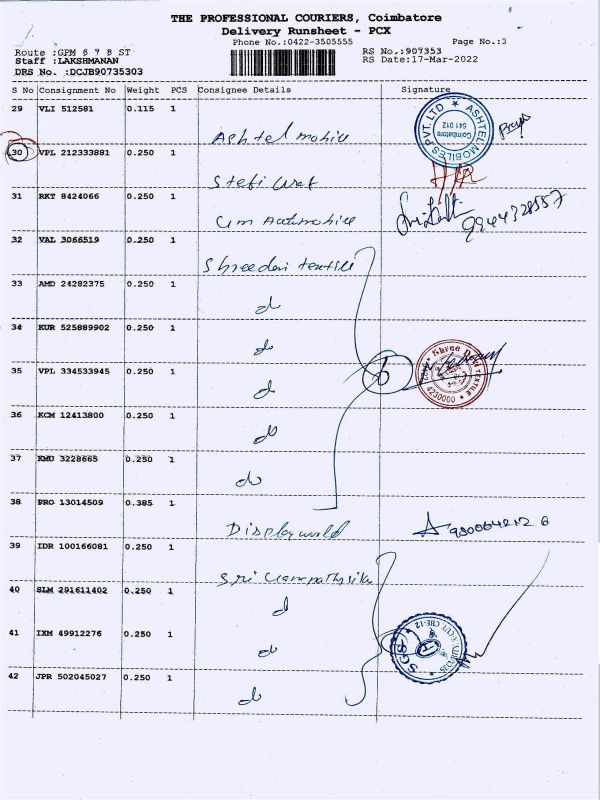 THE PROFESSIONAL COURIERS, Coimbatore
Delivery Runsheet - PCX
Phone No.:0422-3505555 Page No.:3
Route :GPM 6 7 8 ST RS No.:907353
Staff :LAKSHMANAN RS Date:17-Mar-2022
DRS No. :DCJB90735303
S No Consignment No Weight PCS Consignee Details Signature
29 VLI 512581 0.115 1
Ashtel mobile
ASHTEL MOBILES PVT. LTD
Coimbatore
641 012
30 VPL 212333881 0.250 1
31 RKT 8424066 0.250 1
9944328557
32 VAL 3066519 0.250 1
Shreedevi textile
33 AMD 24282375 0.250 1
do
34 KUR 525889902 0.250 1
do
35 VPL 334533945 0.250 1
do
6
TEXTILE
36 KCM 12413800 0.250 1
do
37 KMU 3228665 0.250 1
do
38 PRO 13014509 0.385 1
Displayworld
39 IDR 100166081 0.250 1
Sri Ganapathy silk
40 SLM 291611402 0.250 1
do
41 IXM 49912276 0.250 1
do
SGS
42 JPR 502045027 0.250 1
do